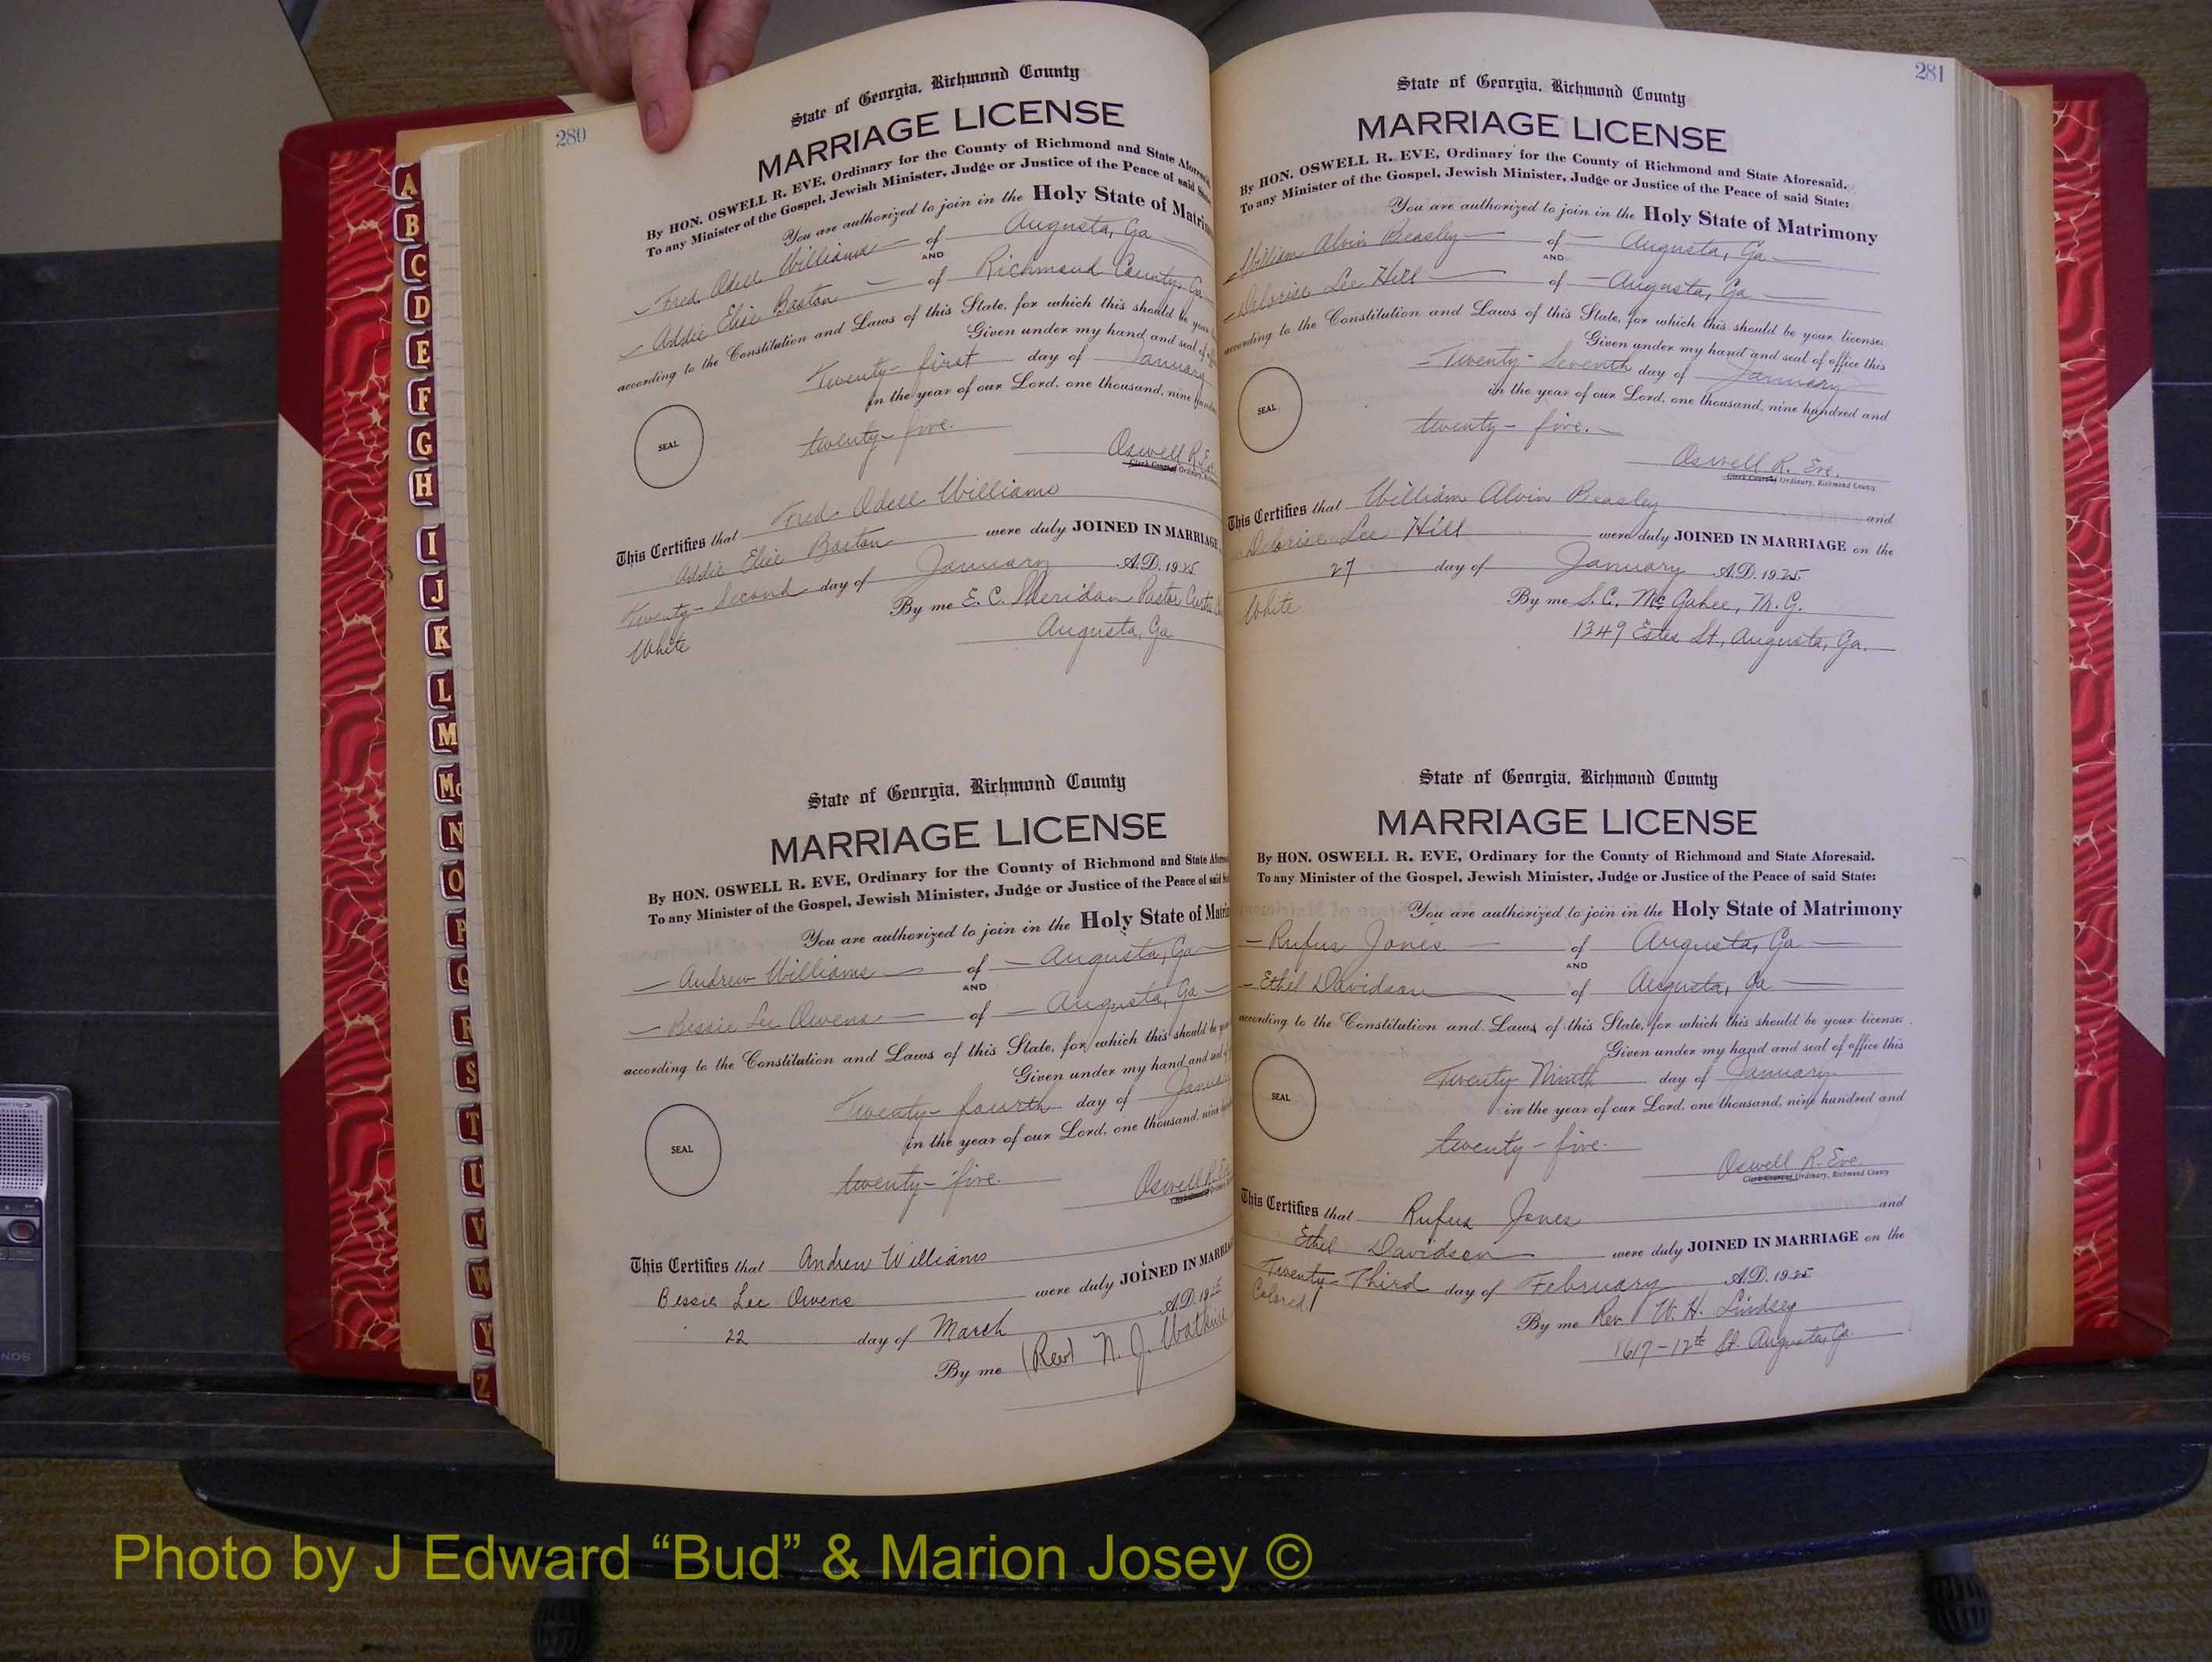 280
State of Georgia, Richmond County
MARRIAGE LICENSE
By HON. OSWELL R. EVE, Ordinary for the County of Richmond and State Aforesaid.
To any Minister of the Gospel, Jewish Minister, Judge or Justice of the Peace of said
You are authorized to join in the Holy State of Matrim
Fred Odell Williams of Augusta, Ga
AND
Addie Elise Baston of Richmond County, Ga
according to the Constitution and Laws of this State, for which this should be your
Given under my hand and seal of
Twenty-first day of January
in the year of our Lord, one thousand, nine hund
SEAL
twenty-five.
Oswell R. E
Clerk Court of Ordinary, Rich
This Certifies that Fred Odell Williams
Addie Elise Baston were duly JOINED IN MARRIAGE
Twenty-Second day of January A.D. 1925
By me E. C. Sheridan Pastor
White
Augusta, Ga.
State of Georgia, Richmond County
MARRIAGE LICENSE
By HON. OSWELL R. EVE, Ordinary for the County of Richmond and State Afores
To any Minister of the Gospel, Jewish Minister, Judge or Justice of the Peace of said
You are authorized to join in the Holy State of Matri
Andrew Williams of Augusta, Ga
AND
Bessie Lee Owens of Augusta, Ga
according to the Constitution and Laws of this State, for which this should be
Given under my hand and seal
Twenty-fourth day of January
in the year of our Lord, one thousand, nine
SEAL
twenty-five.
Oswell R. E
This Certifies that Andrew Williams
Bessie Lee Owens were duly JOINED IN MARRIA
22 day of March A.D. 1925
By me (Rev) N. J. Watkins
281
State of Georgia, Richmond County
MARRIAGE LICENSE
By HON. OSWELL R. EVE, Ordinary for the County of Richmond and State Aforesaid.
To any Minister of the Gospel, Jewish Minister, Judge or Justice of the Peace of said State:
You are authorized to join in the Holy State of Matrimony
William Alvin Beasley of Augusta, Ga
AND
Delorise Lee Hill of Augusta, Ga
according to the Constitution and Laws of this State, for which this should be your license.
Given under my hand and seal of office this
Twenty-Seventh day of January
in the year of our Lord, one thousand, nine hundred and
SEAL
twenty-five.
Oswell R. Eve.
Clerk Court of Ordinary, Richmond County
This Certifies that William Alvin Beasley and
Delorise Lee Hill were duly JOINED IN MARRIAGE on the
27 day of January A.D. 1925
By me S. C. McGahee, M. G.
White
1349 Estes St, Augusta, Ga.
State of Georgia, Richmond County
MARRIAGE LICENSE
By HON. OSWELL R. EVE, Ordinary for the County of Richmond and State Aforesaid.
To any Minister of the Gospel, Jewish Minister, Judge or Justice of the Peace of said State:
You are authorized to join in the Holy State of Matrimony
Rufus Jones of Augusta, Ga
AND
Ethel Davidson of Augusta, Ga
according to the Constitution and Laws of this State, for which this should be your license.
Given under my hand and seal of office this
Twenty Ninth day of January
in the year of our Lord, one thousand, nine hundred and
SEAL
twenty-five.
Oswell R. Eve
Clerk Court of Ordinary, Richmond County
This Certifies that Rufus Jones and
Ethel Davidson were duly JOINED IN MARRIAGE on the
Twenty-Third day of February A.D. 1925
Colored
By me Rev. W. H. Lindsey
1617-12th St. Augusta, Ga.
A
B
C
D
E
F
G
H
I
J
K
L
M
Mc
N
O
P
Q
R
S
T
U
V
W
Y
Z
Photo by J Edward “Bud” & Marion Josey ©